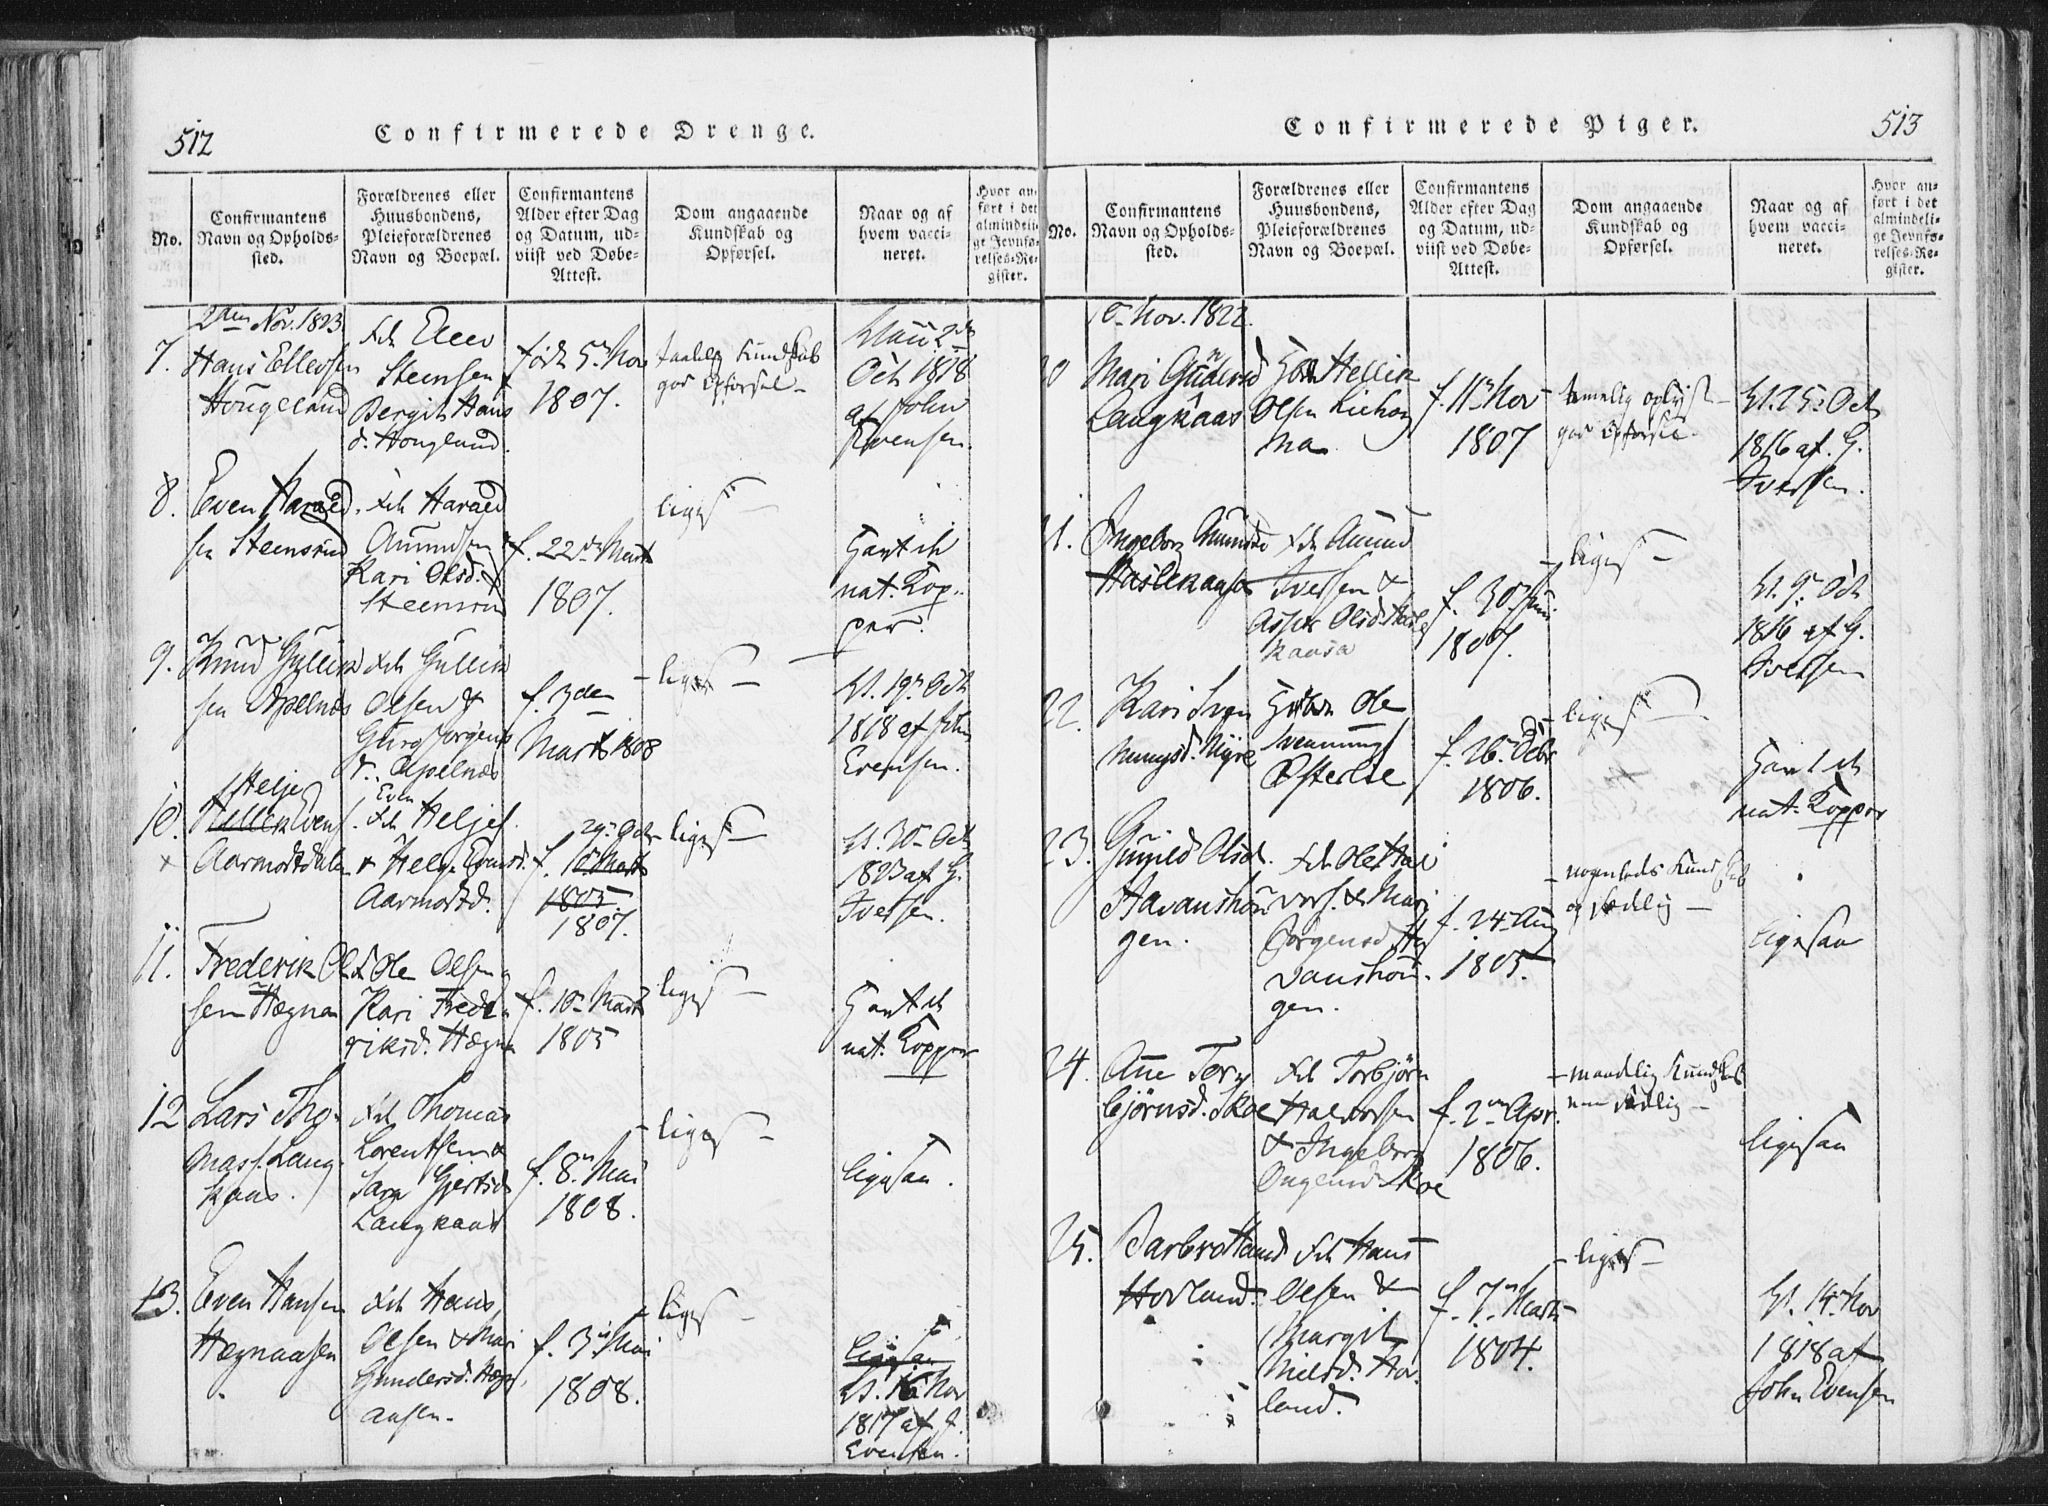 512
Confirmerede Drenge.
No.
Confirmantens
Navn og Opholds-
sted.
Forældrenes eller
Huusbondens,
Pleieforældrenes
Navn og Boepæl.
Confirmantens
Alder efter Dag
og Datum, ud-
viist ved Døbe-
Attest.
Dom angaaende
Kundskab og
Opførsel.
Naar og af
hvem vacci-
neret.
Hvor an-
ført i det
almindelig-
ge Jevnfø-
relses-Re-
gister.
2den Nov. 1823.
7.
Hans Ellevsen
Hougelund
Steensen
Bergit Hans
d. Houglund.
født 5te Nov
1807.
god Opførsel
2den
Oct 1818
af John
Evensen.
8.
Even Harald
sen Steensrud
Harald
Amundsen
Kari Olsd.
Steensrud
f. 22de Marts
1807.
liges
Havt de
nat. Kop-
per.
9.
Knud Gullik
sen Apelnæs
Gullik
Olsen &
Gurg Jørgens
d. Apelnæs
f. 3den
Marts 1808
liges
19de Oct
1818 af John
Evensen.
10.
Helje
Evens.
Aarmodtdalen
Even
Heljes.
& Helge Evensd.
Aarmodtd.
29de Octr
f. 10de Marts
1805.
1807.
liges
30te Oct
1823 af G.
Iversen.
11.
Frederik Ol
sen Hægna
Ole Olsen
Kari Frede
riksd. Hægna
f. 10de Marts
1805
liges
Havt de
nat. Kopper
12
Lars Tho-
mass. Lang
kaas.
Thomas
Lorentsen &
Sara Gjertsd
Langkaas
f. 8de Mai
1808.
liges
ligesaa.
13.
Even Hansen
Hægnaasen
Hans
Olsen & Mari
Gundersd. Hægn
aasen.
f. 3die Mai
1808.
liges
ligesaa
16de Nov
1817 af J.
Evensen.
513
Confirmerede Piger.
No.
Confirmantens
Navn og Opholds-
sted.
Forældrenes eller
Huusbondens,
Pleieforældrenes
Navn og Boepæl.
Confirmantens
Alder efter Dag
og Datum, ud-
viist ved Døbe-
Attest.
Dom angaaende
Kundskab og
Opførsel.
Naar og af
hvem vacci-
neret.
Hvor an-
ført i det
almindeli-
ge Jevnfø-
relses-Re-
gister.
Nov. 1822.
20
Mari Gundersd
Langkaas
Hellik
Olsen
f. 11te Nov
1807
temelig oplyst
god Opførsel.
25de Oct
1816 af G.
Iversen.
21.
Ingeborg Amundsd
Haslekaasa
Amund
Iversen &
Olsd. Hasle
kaasa
f. 30te Juni
1807.
liges
9de Oct
1816 af G.
Iversen
22.
Kari Sven
nungsd. Myre
Ole
Svennungs
Østerlie
f. 26de
1806.
liges
Havt de
nat. Kopper
23.
Gunild Olsd.
Havanshou
gen.
Ole Hal
vors. & Mari
Jørgensd. Ha
vanshou-
gen.
f. 24de Aug
1805.
nogenleds Kundskab
og sædelig
ligesaa
24.
Anne Tor
bjørnsd. Skoe
Torbjørn
Halvorsen
& Ingeborg
Skoe
f. 2den Apr.
1806.
maadelig Kundskab
men sædelig
ligesaa
25.
Barbro Hansd
Hovland.
Hans
Olsen &
Margit
Nielsd. Hov
land.
f. 7de Marts
1804.
liges
14de Nov
1818 af
John Evensen